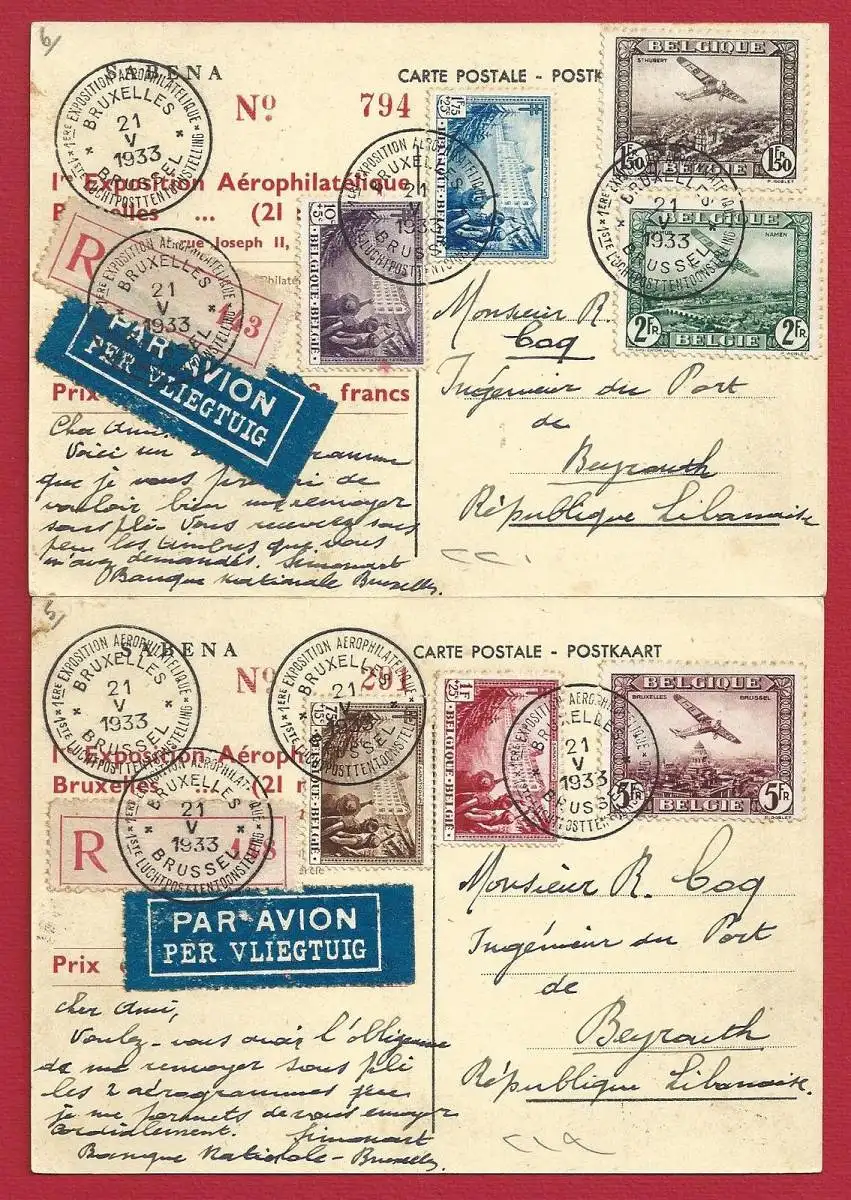 SABENA
CARTE POSTALE - POSTK
Nº 794
1ERE EXPOSITION AÉROPHILATÉLIQUE
BRUXELLES
21
V
1933
BRUSSEL
1STE LUCHTPOSTTENTOONSTELLING
Exposition Aérophilatélique
... (21
rue Joseph II,
R
143
PAR AVION
PER VLIEGTUIG
Prix
francs
1F75
25c
BELGIQUE·BELGIE
10c
5c
BELGIQUE·BELGIE
BELGIQUE
ST HUBERT
1FR50
BELGIE
1FR50
BELGIQUE
NAMEN
2FR
BELGIE
2FR
1ERE EXPOSITION AÉROPHILATÉLIQUE
BRUXELLES
21
V
1933
BRUSSEL
1STE LUCHTPOSTTENTOONSTELLING
Monsieur R.
Coq
Ingénieur du Port
de
Beyrouth
République Libanaise
Cher Ami,
Voici un
que je vous
de
vouloir bien me renvoyer
sous pli. Vous recevrez sous
peu les timbres que vous
m'avez demandés. Simonart
Banque Nationale Bruxelles.
SABENA
CARTE POSTALE - POSTKAART
Nº 291
1ERE EXPOSITION AÉROPHILATÉLIQUE
BRUXELLES
21
V
1933
BRUSSEL
1STE LUCHTPOSTTENTOONSTELLING
Exposition Aéroph
Bruxelles ... (21
R
PAR AVION
PER VLIEGTUIG
Prix
75c
15c
BELGIQUE·BELGIE
1F
+25c
BELGIQUE·BELGIE
BELGIQUE
BRUXELLES BRUSSEL
5FR
BELGIE
5FR
Monsieur R. Coq
Ingénieur du Port
de
Beyrouth
République Libanaise.
Cher Ami,
Voulez-vous avoir l'obligeance
de me renvoyer sous pli
les 2 aérogrammes que
je me permets de vous envoyer
cordialement. Simonart
Banque Nationale-Bruxelles.